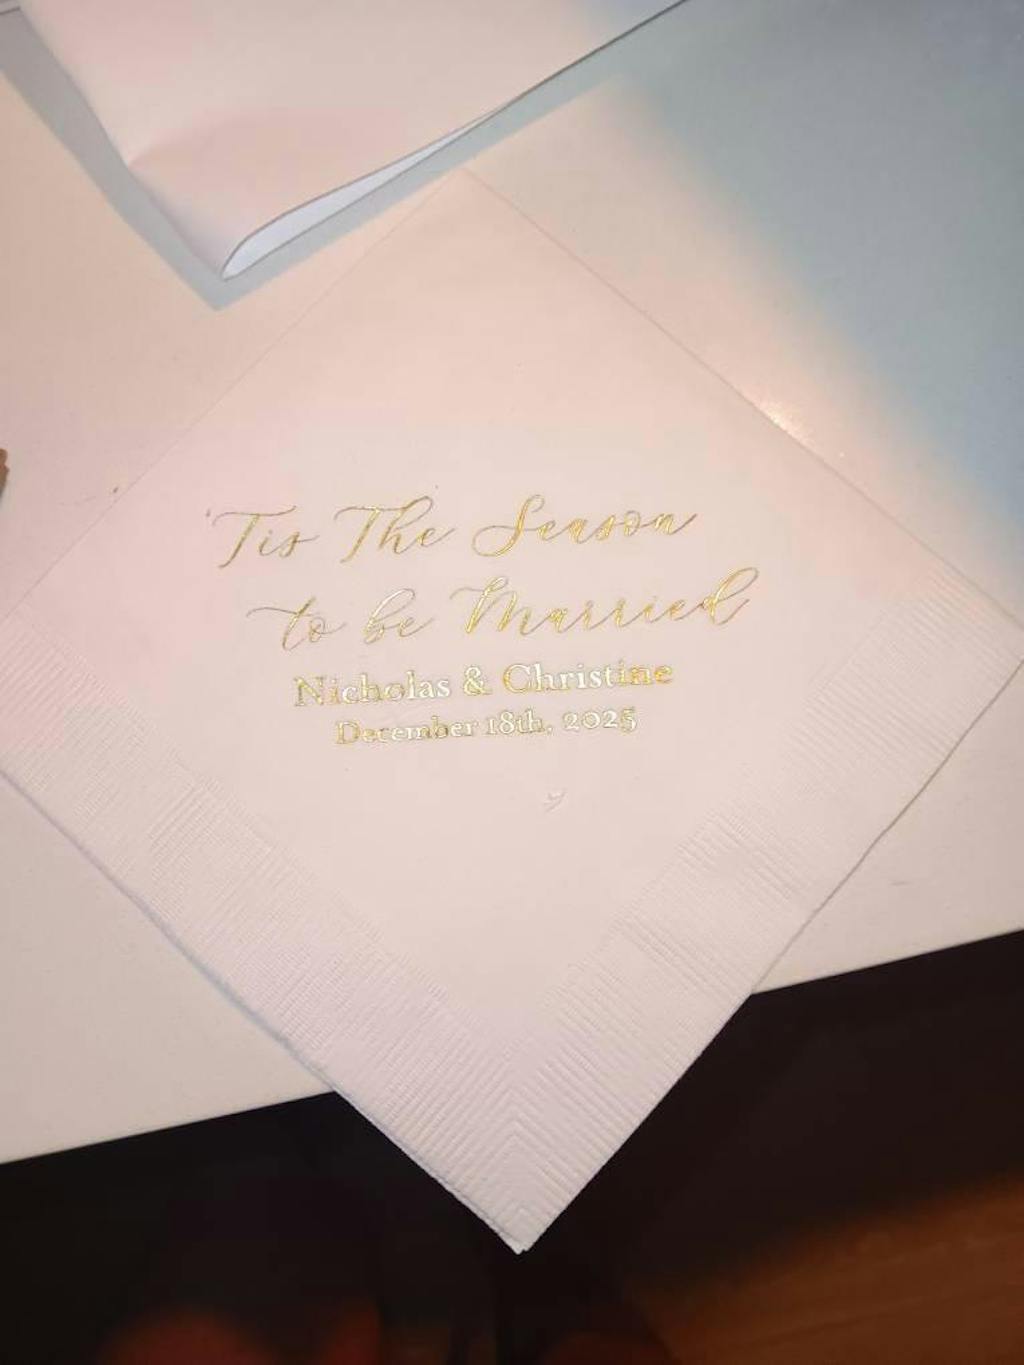 'Tis The Season
to be Married
Nicholas & Christine
December 18th, 2025